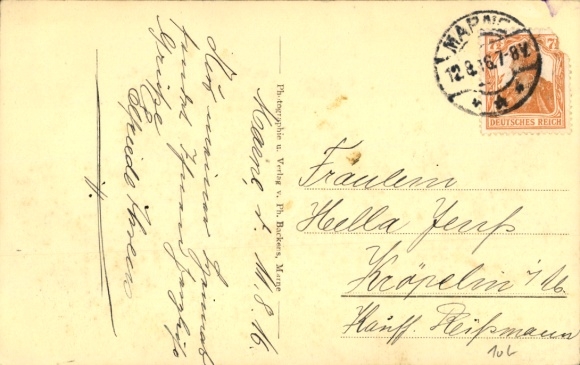 Marne, d. 11.8.16.
Aus meiner Heimat
sendet Ihnen herzliche
Grüße
Frieda
Photographie u. Verlag v. Ph. Backens, Marne
MARNE
12.8.16.7-8V.
7½ 7½
DEUTSCHES REICH
Fräulein
Hella Jenß
Kröpelin i/M.
Kauff. Reißmann